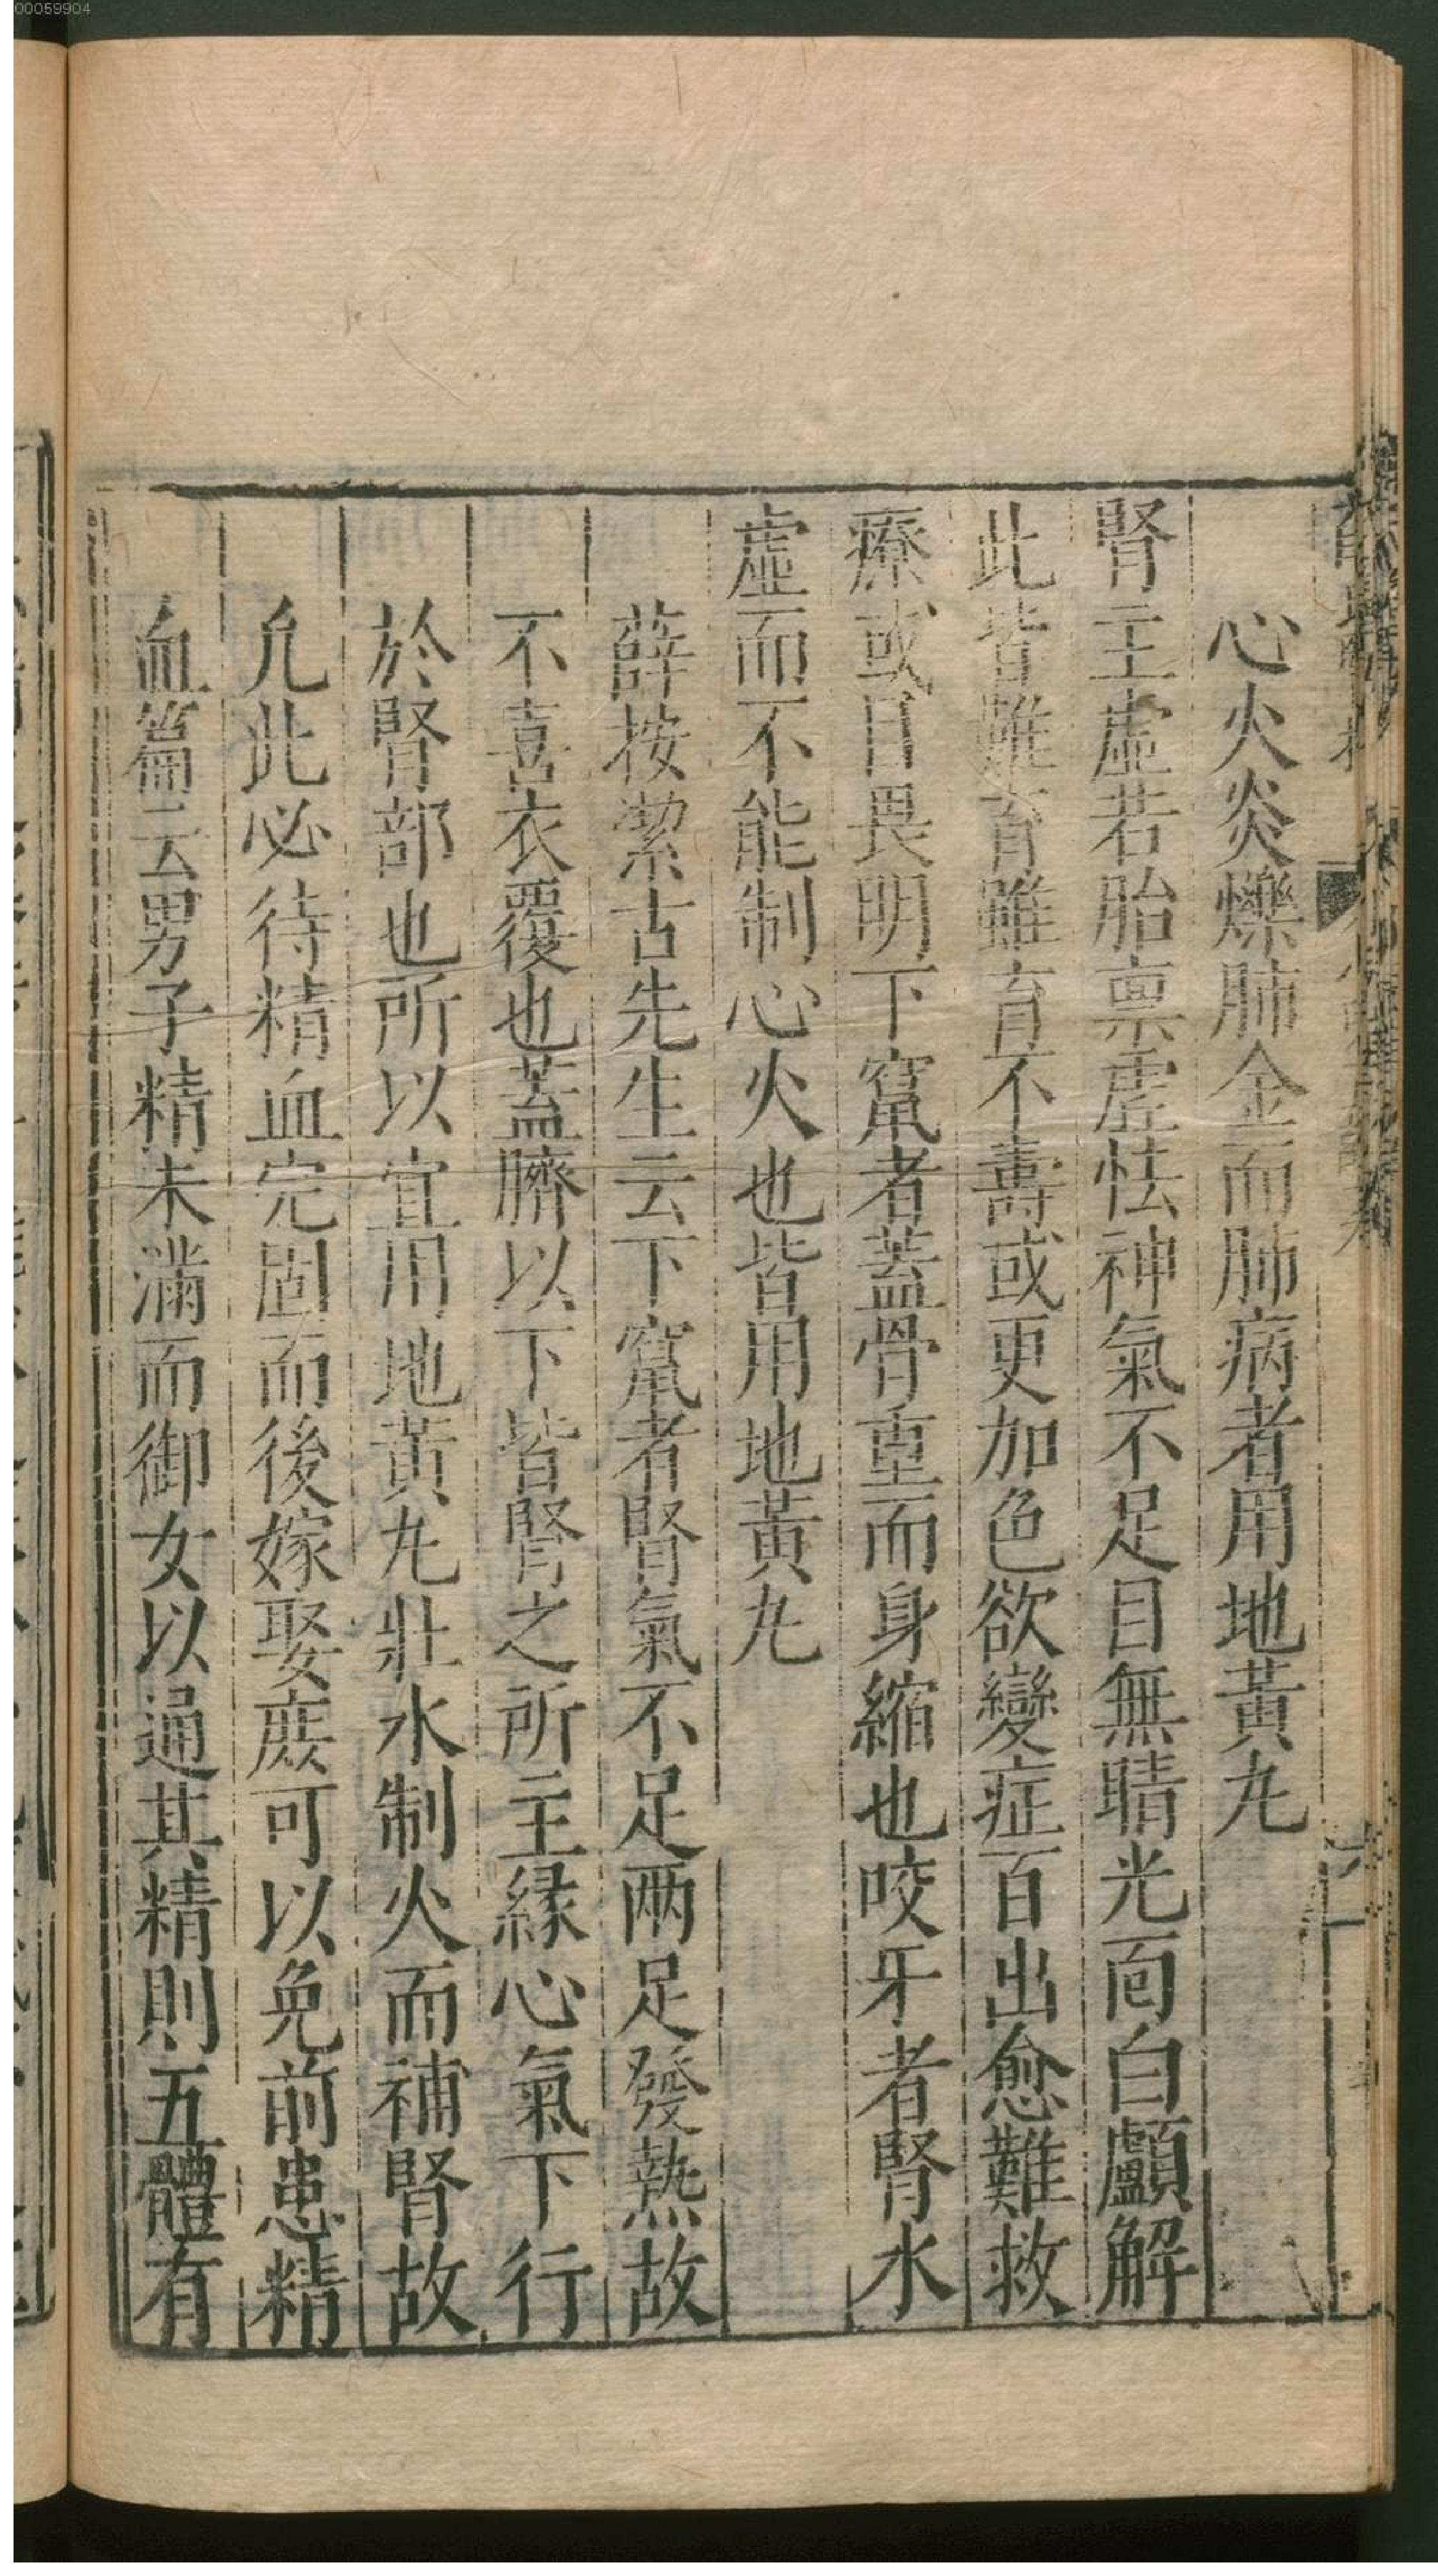 00059904
心火炎爍肺金而肺病者用地黃丸
腎主虛若胎禀虛怯神氣不足目無睛光面白顱解
此皆難育雖育不壽或更加色欲變症百出愈難救
療或目畏明下竄者蓋骨重而身縮也咬牙者腎水
虛而不能制心火也皆用地黃丸
薛按潔古先生云下竄者腎氣不足两足發熱故
不喜衣覆也蓋臍以下皆腎之所主緣心氣下行
於腎部也所以宜用地黃丸壯水制火而補腎故
凢此必待精血完固而後嫁娶庻可以免前患精
血篇云男子精未滿而御女以通其精則五體有